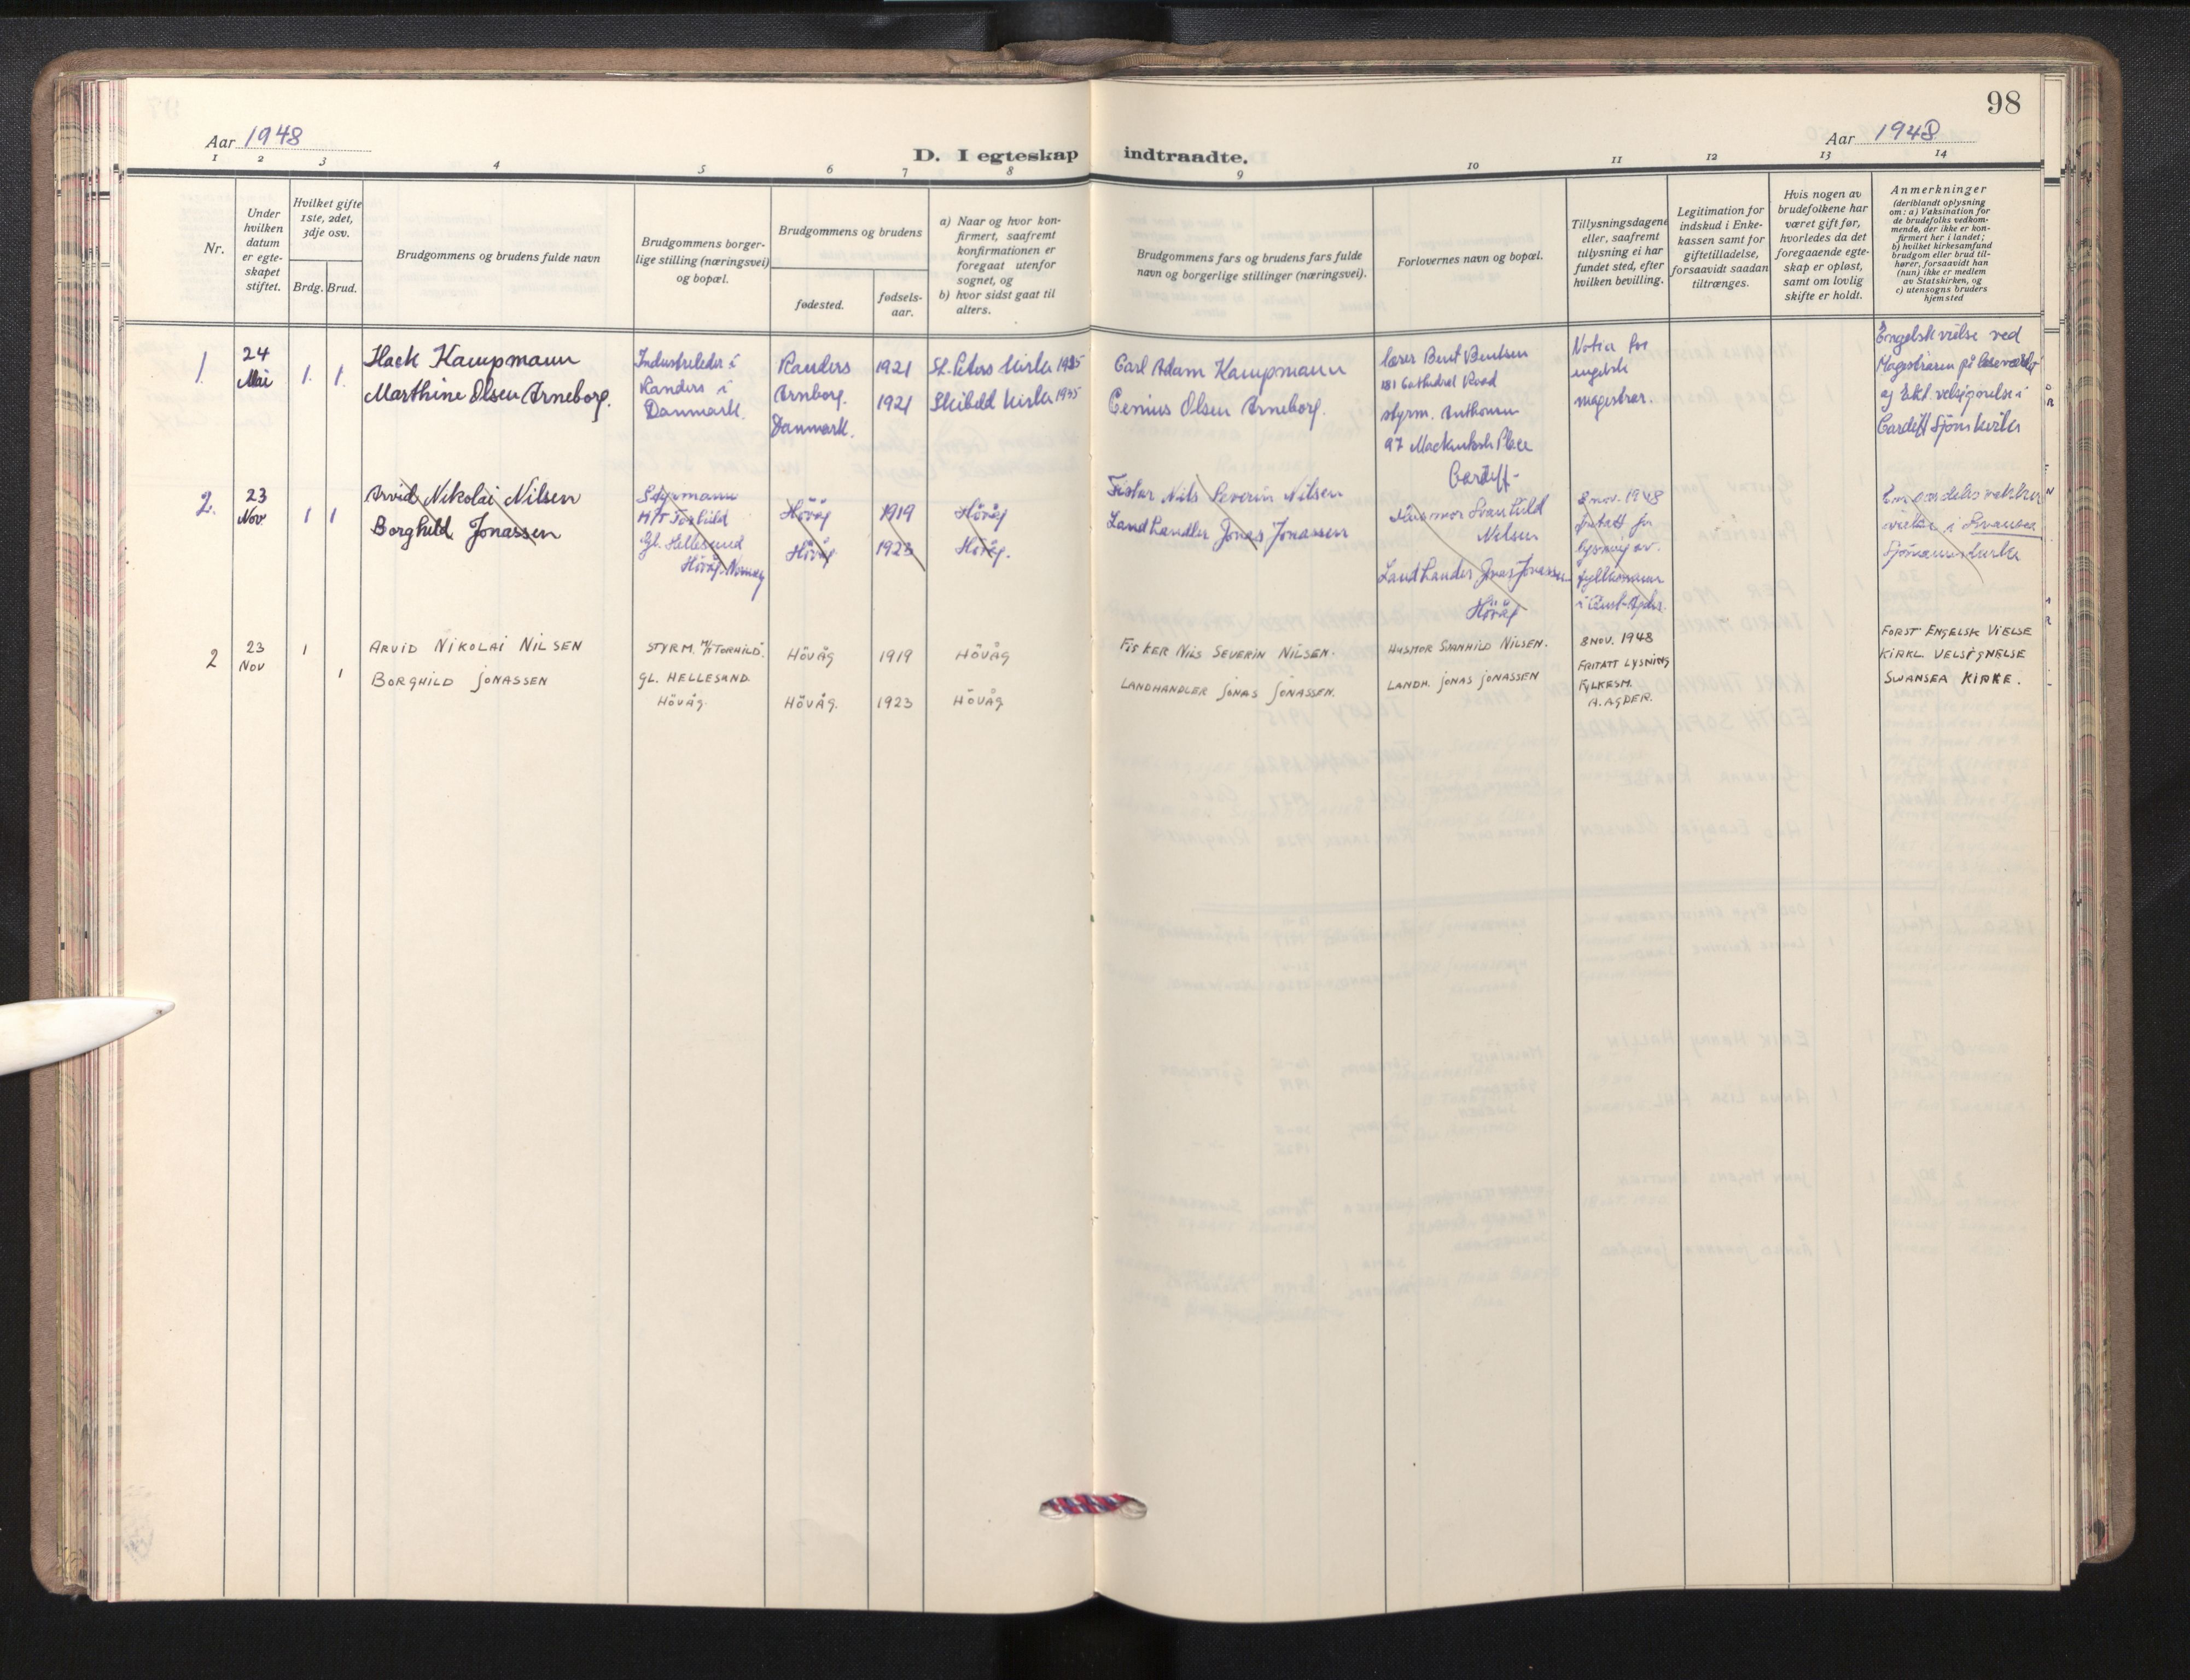 98
Aar 1948
Aar 1948
D. I egteskap indtraadte.
1 2 3 4 5 6 7 8 9 10 11 12 13 14
Nr.
Under
hvilken
datum
er egte-
skapet
stiftet.
Hvilket gifte
1ste, 2det,
3dje osv.
Brdg. Brud.
Brudgommens og brudens fulde navn
Brudgommens borger-
lige stilling (næringsvei)
og bopæl.
Brudgommens og brudens
fødested.
fødsels-
aar.
a) Naar og hvor kon-
firmert, saafremt
konfirmationen er
foregaat utenfor
sognet, og
b) hvor sidst gaat til
alters.
Brudgommens fars og brudens fars fulde
navn og borgerlige stillinger (næringsvei).
Forlovernes navn og bopæl.
Tillysningsdagene
eller, saafremt
tillysning ei har
fundet sted, efter
hvilken bevilling.
Legitimation for
indskud i Enke-
kassen samt for
giftetilladelse,
forsaavidt saadan
tiltrænges.
Hvis nogen av
brudefolkene har
været gift før,
hvorledes da det
foregaaende egte-
skap er opløst,
samt om lovlig
skifte er holdt.
Anmerkninger
(deriblandt oplysning
om: a) Vaksination for
de brudefolks vedkom-
mende, der ikke er kon-
firmert her i landet;
b) hvilket kirkesamfund
brudgom eller brud til-
hører, forsaavidt han
(hun) ikke er medlem
av Statskirken, og
c) utensogns bruders
hjemsted
1.
24
Mai
1. 1.
Hack Kampmann
Marthine Olsen Arneborg.
Industrileder i
Randers i
Danmark.
Randers
Arnborg.
Danmark.
1921
1921
St. Peters kirke 1935
Skibild kirke 1935
Carl Adam Kampmann
Genius Olsen Arneborg.
lærer Berit Bentsen
181 Cathedral Road
styrm. Anthonsen
97 Mackintosh Place
Cardiff-
Notia for
engelsk
magistrer.
Engelsk vielse ved
Magistraren på
og Ekt. velsignelse i
Cardiff Sjömkirke
2.
23
Nov
1 1
Arvid Nikolai Nilsen
Borghild Jonassen
Styrmann
M/T Torhild
Gl. Hellesund
Höväg Norway
Höväg
Höväg
1919
1923
Höväg
Höväg.
Fisker Nils Severin Nilsen
Landhandler Jonas Jonassen
Husmor Svanhild
Nilsen
Landhandler Jonas Jonassen
Höväg
8 nov. 1948
fritatt for
lysning av.
fylkesmann
i Aust-Agder.
vielse i Swansea
Sjömannskirke
2
23
Nov
1
1
ARVID NIKOLAI NILSEN
BORGHILD JONASSEN
STYRM. M/T TORHILD.
GL. HELLESAND.
HÖVÅG.
HÖVÅG
HÖVÅG.
1919
1923
HÖVÅG
HÖVÅG
FISKER NILS SEVERIN NILSEN.
LANDHANDLER JONAS JONASSEN.
HUSMOR SVANHILD NILSEN.
LANDH. JONAS JONASSEN
8 NOV. 1948
FRITATT LYSNING
FYLKESM.
A. AGDER.
FORST ENGELSK VIELSE
KIRKL. VELSIGNELSE
SWANSEA KIRKE.